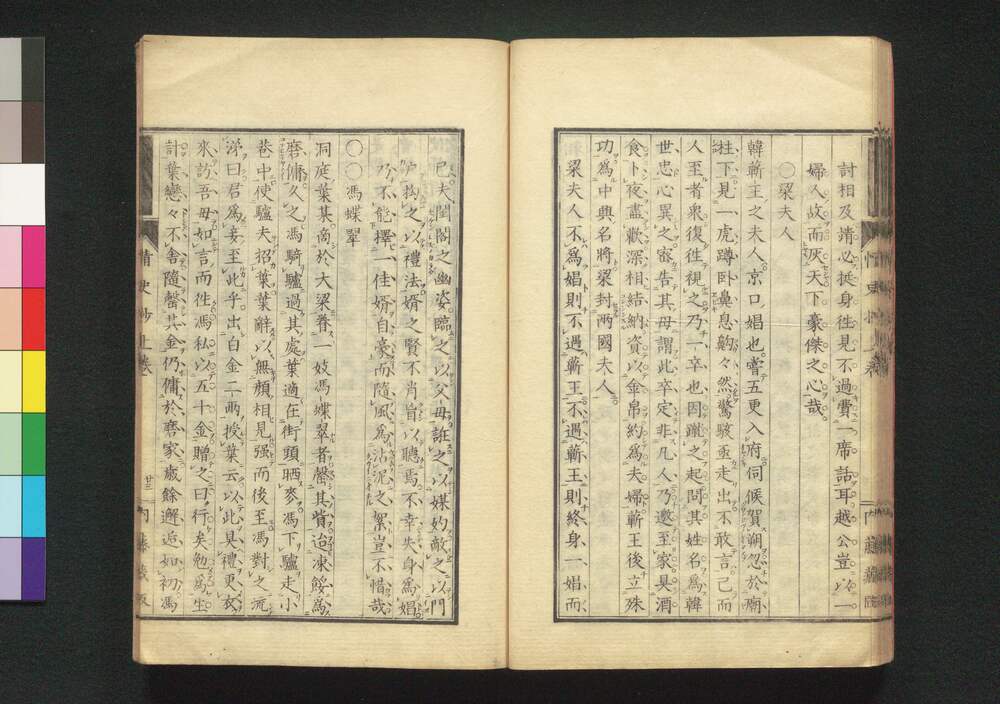 討相及靖必挺身徃見不過費一席話耳越公豈以一
婦人故而灰天下豪傑之心哉
○梁夫人
韓蘄王之夫人京口娼也嘗五更入府伺候賀朔忽於廟
柱下見一虎蹲卧鼻息齁々然驚駭亟走出不敢言已而
人至者衆復徃視之乃一卒也因蹴之起問其姓名為韓
世忠心異之密告其母謂此卒定非凡人乃邀至家具酒
食卜夜盡歡深相結納資以金帛約為夫婦蘄王後立殊
功為中興名將梁封两國夫人
梁夫人不為娼則不遇蘄王不遇蘄王則終身一娼而
已夫閨閣之幽姿臨之以父母誑之以媒妁敵之以門
戸拘之以禮法婿之賢不肖皆以聽焉不幸失身為娼
乃不能擇一佳婿自豪而隨風為沾泥之絮豈不惜哉
○馮蝶翠
洞庭葉某商於大梁眷一妓馮蝶翠者罄其貲迨凍餒為
磨傭久之馮騎驢過其處葉適在街頭晒麥馮下驢走小
巷中使驢夫招葉葉辭以無顔相見强而後至馮對之流
涕曰君為妾至此乎出白金二兩授葉云以此具禮更衣
來訪吾母如言而徃馮私以五十金贈之曰行矣勉為生
計葉戀々不舎隨罄其金仍傭於磨家歳餘邂逅如初馮
情史抄上巻
廿三